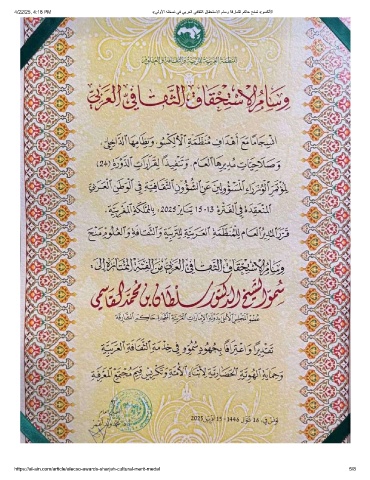 4/22/25, 4:16 PM
الألكسو تمنح حاكم الشارقة وسام الاستحقاق الثقافي العربي في نسخته الأولى
المنظمة العربية للتربية والثقافة والعلوم
وسام الاستحقاق الثقافي العربي
انسجاما مع أهداف منظمة الألكسو، ونظامها الداخلي،
وصلاحيات مديرها العام. وتنفيذا لقرارات الدورة (24)
لمؤتمر الوزراء المسؤولين عن الشؤون الثقافية في الوطن العربي
المنعقدة في الفترة 13-15 يناير 2025، بالمملكة المغربية.
قرر المدير العام للمنظمة العربية للتربية والثقافة والعلوم منح
وسام الاستحقاق الثقافي العربي من الفئة الممتازة إلى،
سمو الشيخ الدكتور سلطان بن محمد القاسمي
عضو المجلس الأعلى بدولة الإمارات العربية المتحدة حاكم الشارقة
تقديرا واعترافا بجهود سموه في خدمة الثقافة العربية
وحماية الهوية الحضارية لأبناء الأمة وتكريس قيم مجتمع المعرفة
تونس في، 16 شوال 1446 - 15 أبريل 2025
https://al-ain.com/article/alecso-awards-sharjah-cultural-merit-medal
5/8